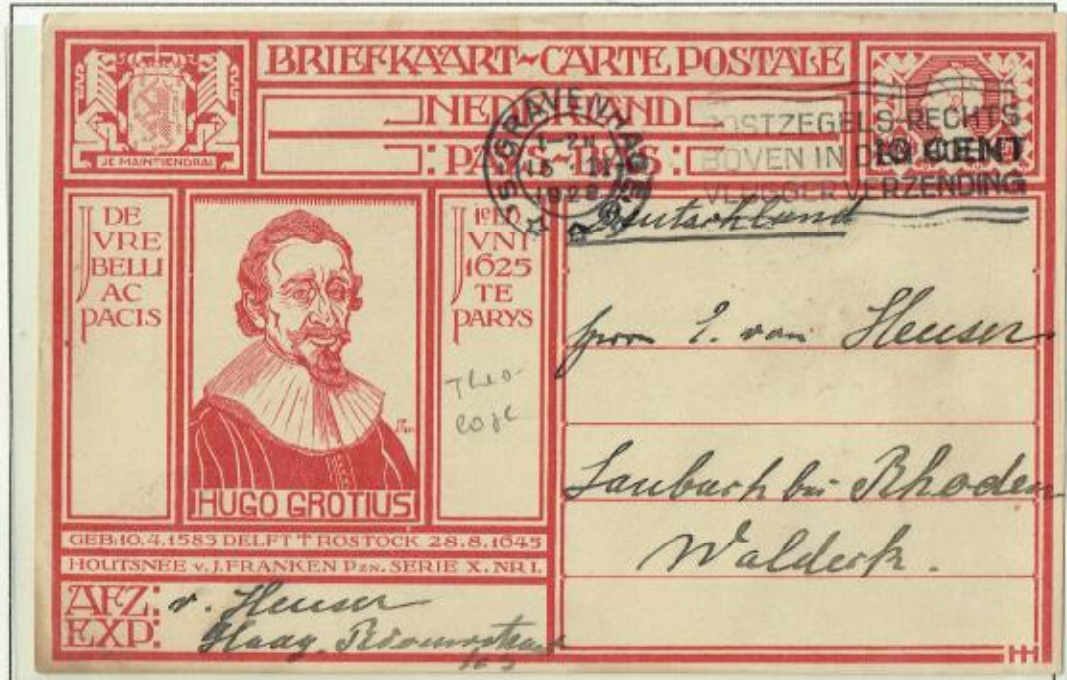 BRIEFKAART~CARTE POSTALE
JE MAINTIENDRAI
NEDERLAND
:PAYS-BAS:
'S-GRAVENHAGE
1928
POSTZEGELS-RECHTS
BOVEN IN DEN HOEK:
VLUGGER VERZENDING
10 CENT
JDE
VRE
BELLI
AC
PACIS
VNI
1625
TE
PARYS
Theo-
loge
HUGO GROTIUS
GEB: 10.4.1583 DELFT † ROSTOCK 28.8.1645
HOUTSNEE v. J. FRANKEN PZN. SERIE X. NR 1.
AFZ:
EXP:
v. Heuser
Haag,
Deutschland
Herrn
von Heuser
Laubach bei Rhoden
Waldeck.